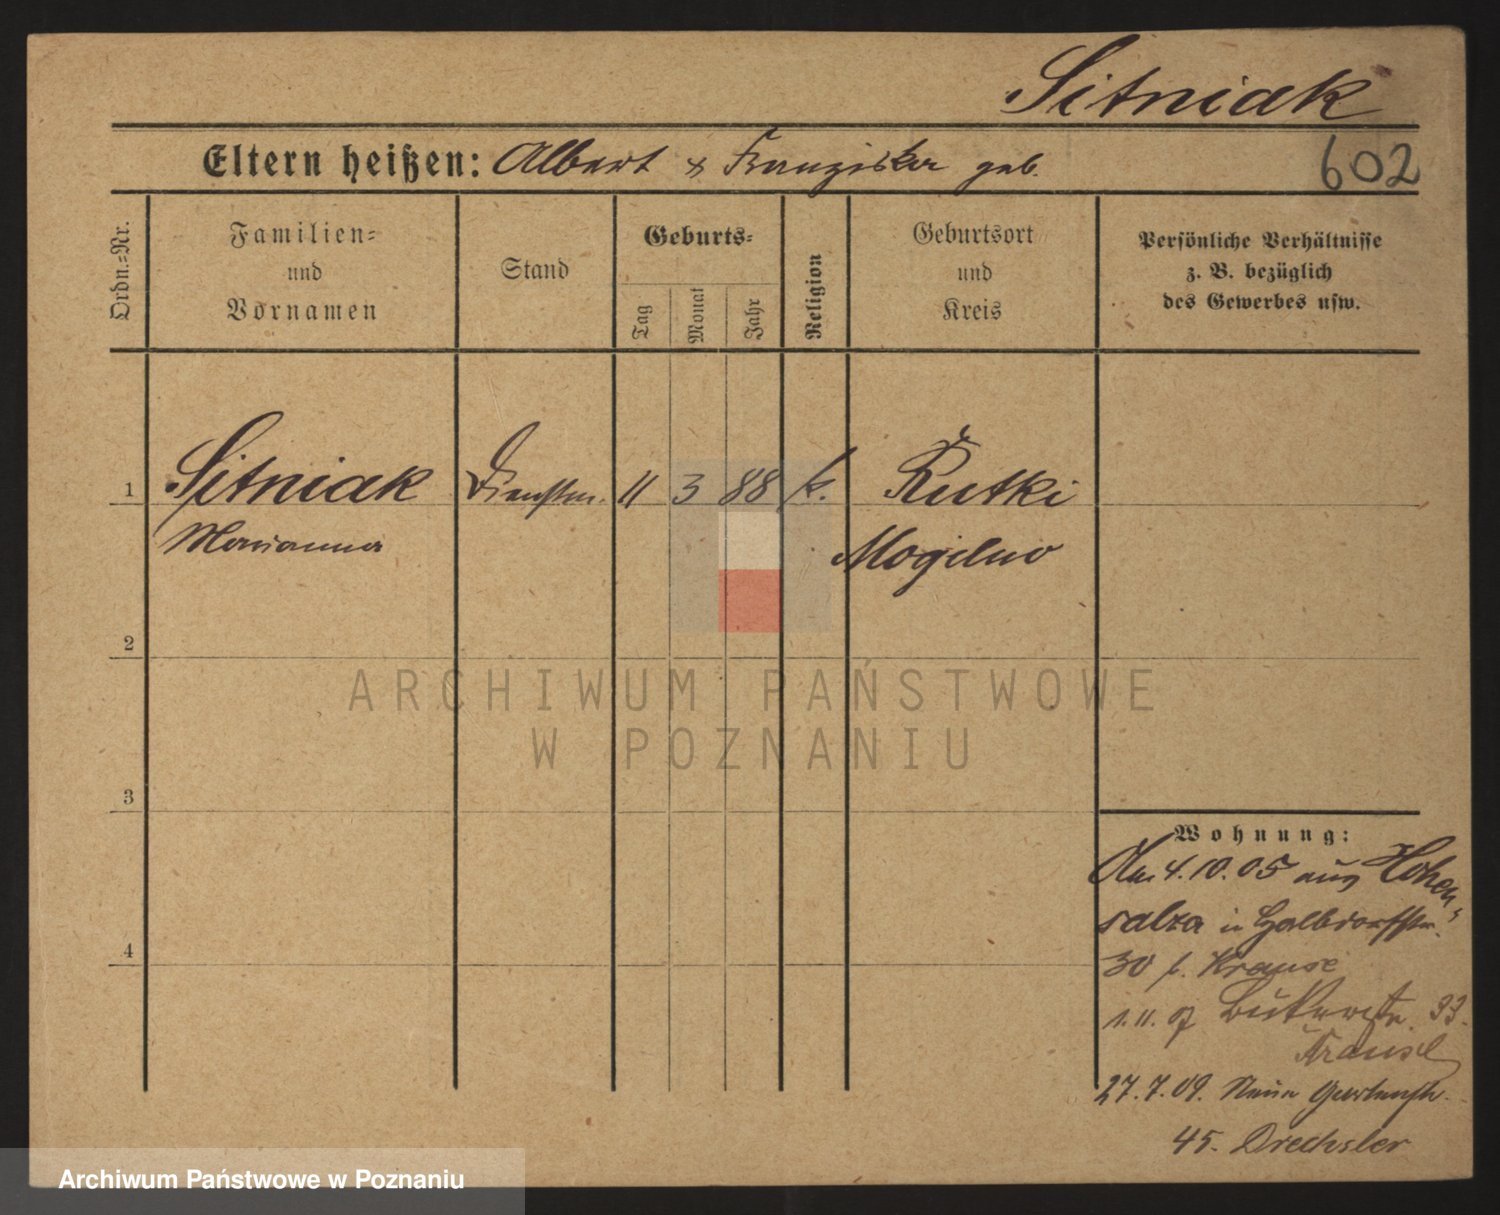 Sitniak
Eltern heißen: Albert & Franziska geb.
602
Ordn.-Nr.
Familien-
und
Vornamen
Stand
Geburts-
Tag
Monat
Jahr
Religion
Geburtsort
und
Kreis
Persönliche Verhältnisse
z. B. bezüglich
des Gewerbes usw.
1
Sitniak
Marianna
Dienstm.
11
3
88
k.
Rutki
Mogilno
2
3
4
Wohnung:
4.10.05 aus Hohen-
salza in Halbdorfstr.
30 b. Krause
1.11.07 Bukerstr. 33
Krause
27.7.09. Neue Gartenstr.
45. Drechsler
ARCHIWUM PAŃSTWOWE
W POZNANIU
Archiwum Państwowe w Poznaniu